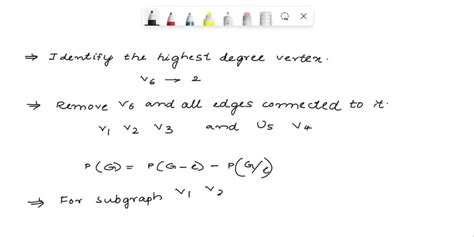 ⇒ Identify the highest degree vertex.
V₆ → 2
⇒ Remove V₆ and all edges connected to it.
V₁ V₂ V₃ and U₅ V₄
P(G) = P(G-e) - P(G/e)
⇒ For subgraph V₁ V₂